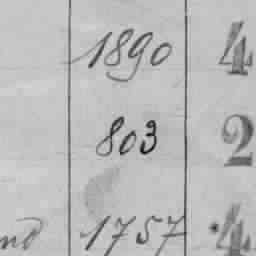 1890 4
803 2
nd 1757 4